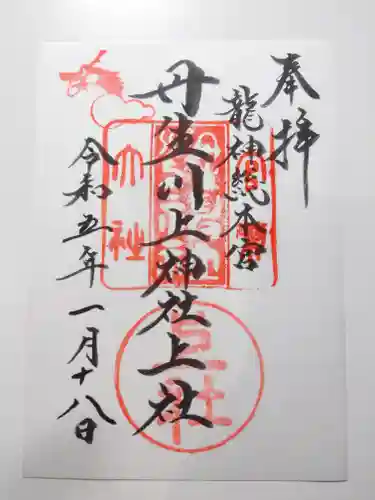 奉拝
龍神総本宮
丹生川上神社上社
令和五年一月十八日